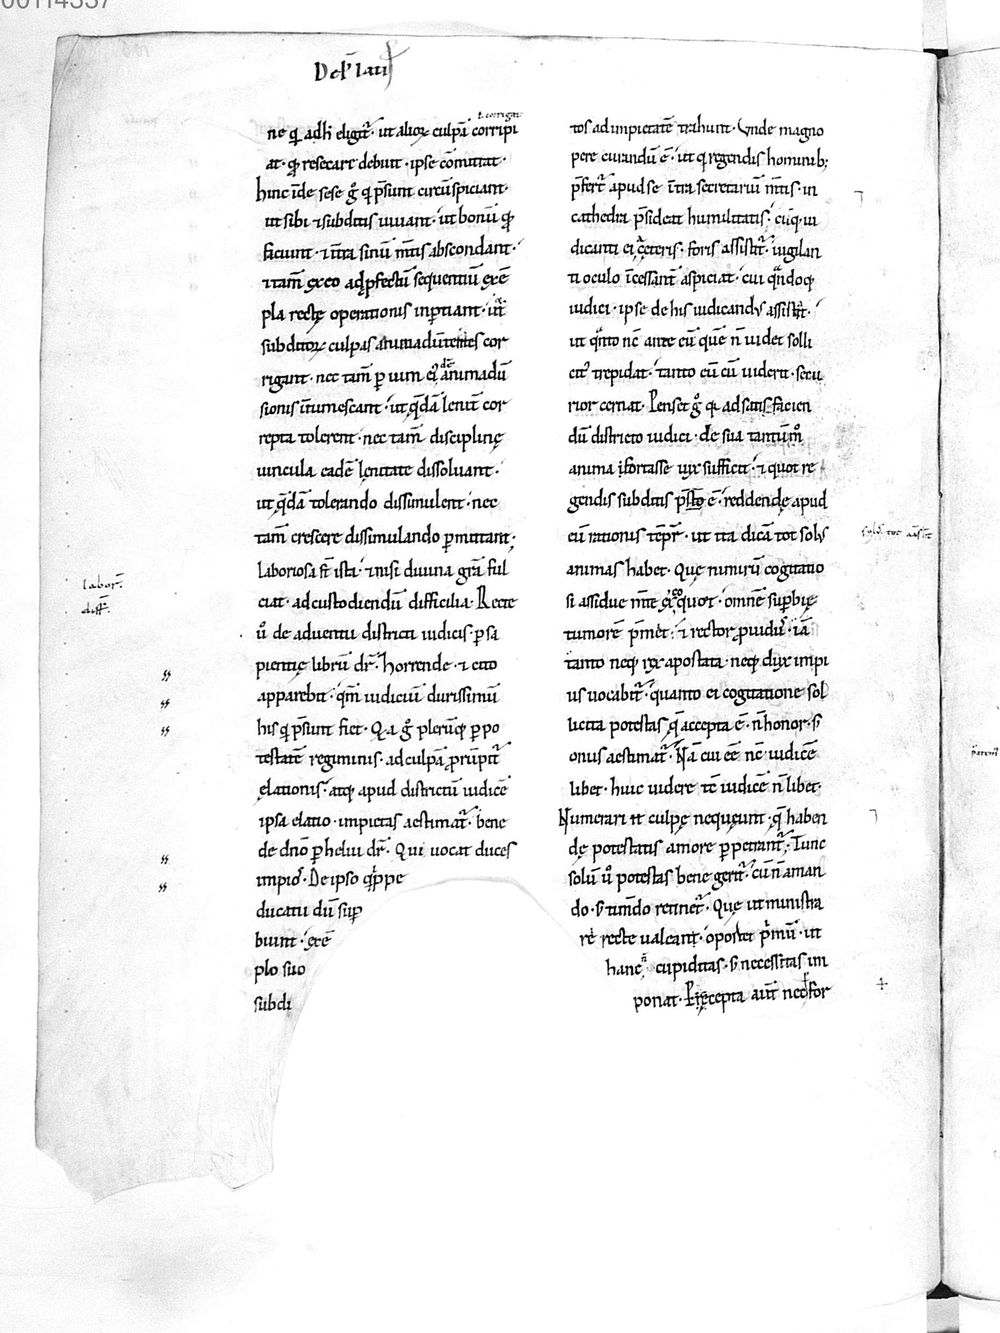 00114337
ne q̄ adh̄ eligit᷑. ut alioꝝ culpā corripi
ł corrigat
at. ꝙ resecare debuit. ipse cōmittat.
hinc īde sese ḡ q̄ p̄sunt circūspiciant.
ut sibi ⁊ subditis uiuant. ut bonū ꝙ
faciunt. ⁊ īt̄ra sinū m̄tis abscondant.
⁊ tam̄ ex eo ad ꝓfectū sequentiū exē
pla recte operationis inp̄tiant. ut̄
subditoꝝ culpas animaduertentes cor
rigant. nec tam̄ ꝑ uim ei᷒ de animadū
sionis ītumescant. ut q̄dā lenit̄ cor
repta tolerent. nec tam̄ discipline
uincula eadē lenitate dissoluant.
ut q̄dā tolerando dissimulent. nec
tam̄ crescere dissimulando ꝑmittant.
laboriosa s̄t ista. ⁊ nisi diuina gr̄a ful
ciat. ad custodiendū difficilia. Recte
ū de aduentu districti iudicis. ꝑ sa
pientię librū dr̄. horrende. ⁊ cito
apparebit. qm̄ iudiciū durissimū
his q̄ p̄sunt fiet. Q̄a ḡ plerūq; ꝑ po
testatē regiminis. ad culpā ꝓrūpit᷑
elationis. atq; apud districtū iudicē
ipsa elatio. impietas aestimat᷑. bene
de dn̄o ꝑ heliu dr̄. Qui uocat duces
impios. De ipso q̄ppe
ducatu dū suꝑ
biunt. exē
plo suo
subdi
tos ad impietatē trahunt. Unde magno
pere curandū ē. ut q̄ regendis hominib;
p̄fert᷑ apud se īt̄ra secretariū m̄tis. in
cathedra p̄sideat humilitatis. cūq; iu
dicanti ei ceteris. foris assistit᷑. uigilan
ti oculo īcessant̄ aspiciat. cui q̄ndoq;
iudici. ipse de his iudicandus assistit.
ut q̄nto nc̄ ante eū quē n̄ uidet solli
cit᷒ trepidat. tanto eū cū uiderit. secu
rior cernat. Penset ḡ q̄ ad satisfacien
dū districto iudici. de sua tantūm̊
anima fortasse uix sufficit. ⁊ quot re
gendis subditis p̄est. reddende apud
eū rationis tēpr̄. ut ita dicā tot solus
animas habet. Quę nimirū cogitatio
si assidue m̄te excoquat. omnē suꝑbię
tumorē p̄met. ⁊ rector ꝓuidus. iā
tanto neq; rex apostata. neq; dux impi
us uocabit᷑. quanto ei cogitatione sol
licita potestas q̄ accepta ē. n̄ honor. s̄
onus aestimat᷑. Nā cui eē nc̄ iudicē
libet. huic uidere tc̄ iudicē n̄ libet.
Numerari et culpę nequeunt. q̄ haben
dę potestatis amore ꝑpetrant᷑. Tunc
solū ū potestas bene gerit᷑. cū n̄ aman
do. s̄ timendo retinet᷑. Quę ut ministra
re recte ualeant. oportet p̄mū. ut
hanc n̄ cupiditas. s̄ necessitas im
ponat. Pꝛcepta aut̄ nec for
labor᷑.
diff᷑.